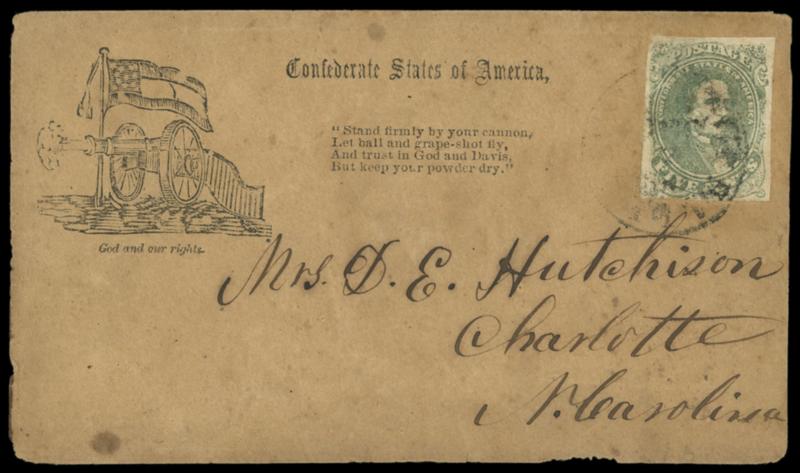 Confederate States of America,
"Stand firmly by your cannon,
Let ball and grape-shot fly,
And trust in God and Davis,
But keep your powder dry."
God and our rights.
POSTAGE
CONFEDERATE STATES OF AMERICA
FIVE CENTS
Mrs. D. E. Hutchison
Charlotte
N. Carolina